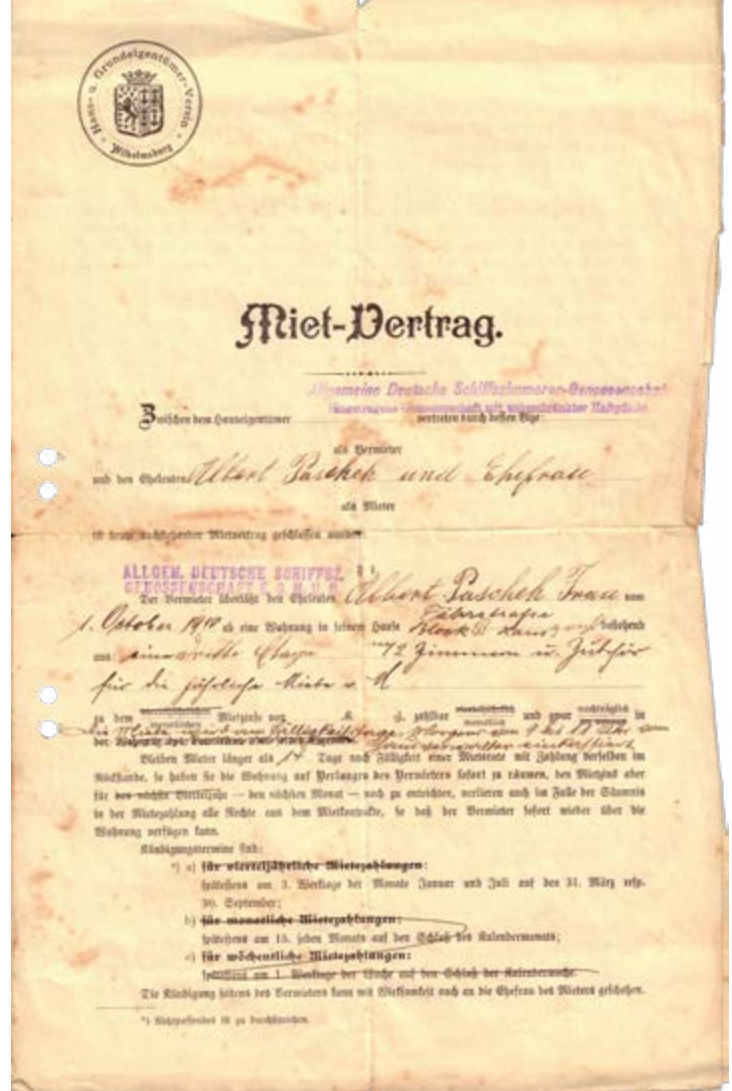 Haus- u. Grundeigentümer-Verein
Wilhelmsburg
Miet-Vertrag.
Allgemeine Deutsche Schiffszimmerer-Genossenschaft
Eingetragene Genossenschaft mit beschränkter Haftpflicht
Zwischen dem Hauseigentümer vertreten durch dessen Vize
als Vermieter
und den Eheleuten Albert Paschek und Ehefrau
als Mieter
ist heute nachstehender Mietvertrag geschlossen worden:
§ 1.
ALLGEM. DEUTSCHE SCHIFFSZ.
GENOSSENSCHAFT
Der Vermieter überläßt den Eheleuten Albert Paschek Frau vom
1. October ab eine Wohnung in seinem Hause Fährstrasse Block bestehend
aus eine dritte Etage 2 Zimmern u. Zubehör
für die jährliche Miete v. M
zu dem vierteljährlichen monatlichen Mietzinse von zahlbar vierteljährlich monatlich und zwar nachträglich in
die Miete wird am Fälligkeitstage, Morgens von 9 bis 11 Uhr vom
der
Hausverwalter einkassiert
Bleiben Mieter länger als 14 Tage nach Fälligkeit einer Mietsrate mit Zahlung derselben im
Rückstande, so haben sie die Wohnung auf Verlangen des Vermieters sofort zu räumen, den Mietzins aber
für das nächste Vierteljahr — den nächsten Monat — noch zu entrichten, verlieren auch im Falle der Säumnis
in der Mietezahlung alle Rechte aus dem Mietkontrakte, so daß der Vermieter sofort wieder über die
Wohnung verfügen kann.
Kündigungstermine sind:
*) a) für vierteljährliche Mietezahlungen:
spätestens am 3. Werktage der Monate Januar und Juli auf den 31. März resp.
30. September;
b) für monatliche Mietezahlungen:
spätestens am 15. jeden Monats auf den Schluß des Kalendermonats;
c) für wöchentliche Mietezahlungen:
spätestens am 1. Werktage der Woche auf den Schluß der Kalenderwoche.
Die Kündigung seitens des Vermieters kann mit Wirksamkeit auch an die Ehefrau des Mieters geschehen.
*) Nichtpassendes ist zu durchstreichen.